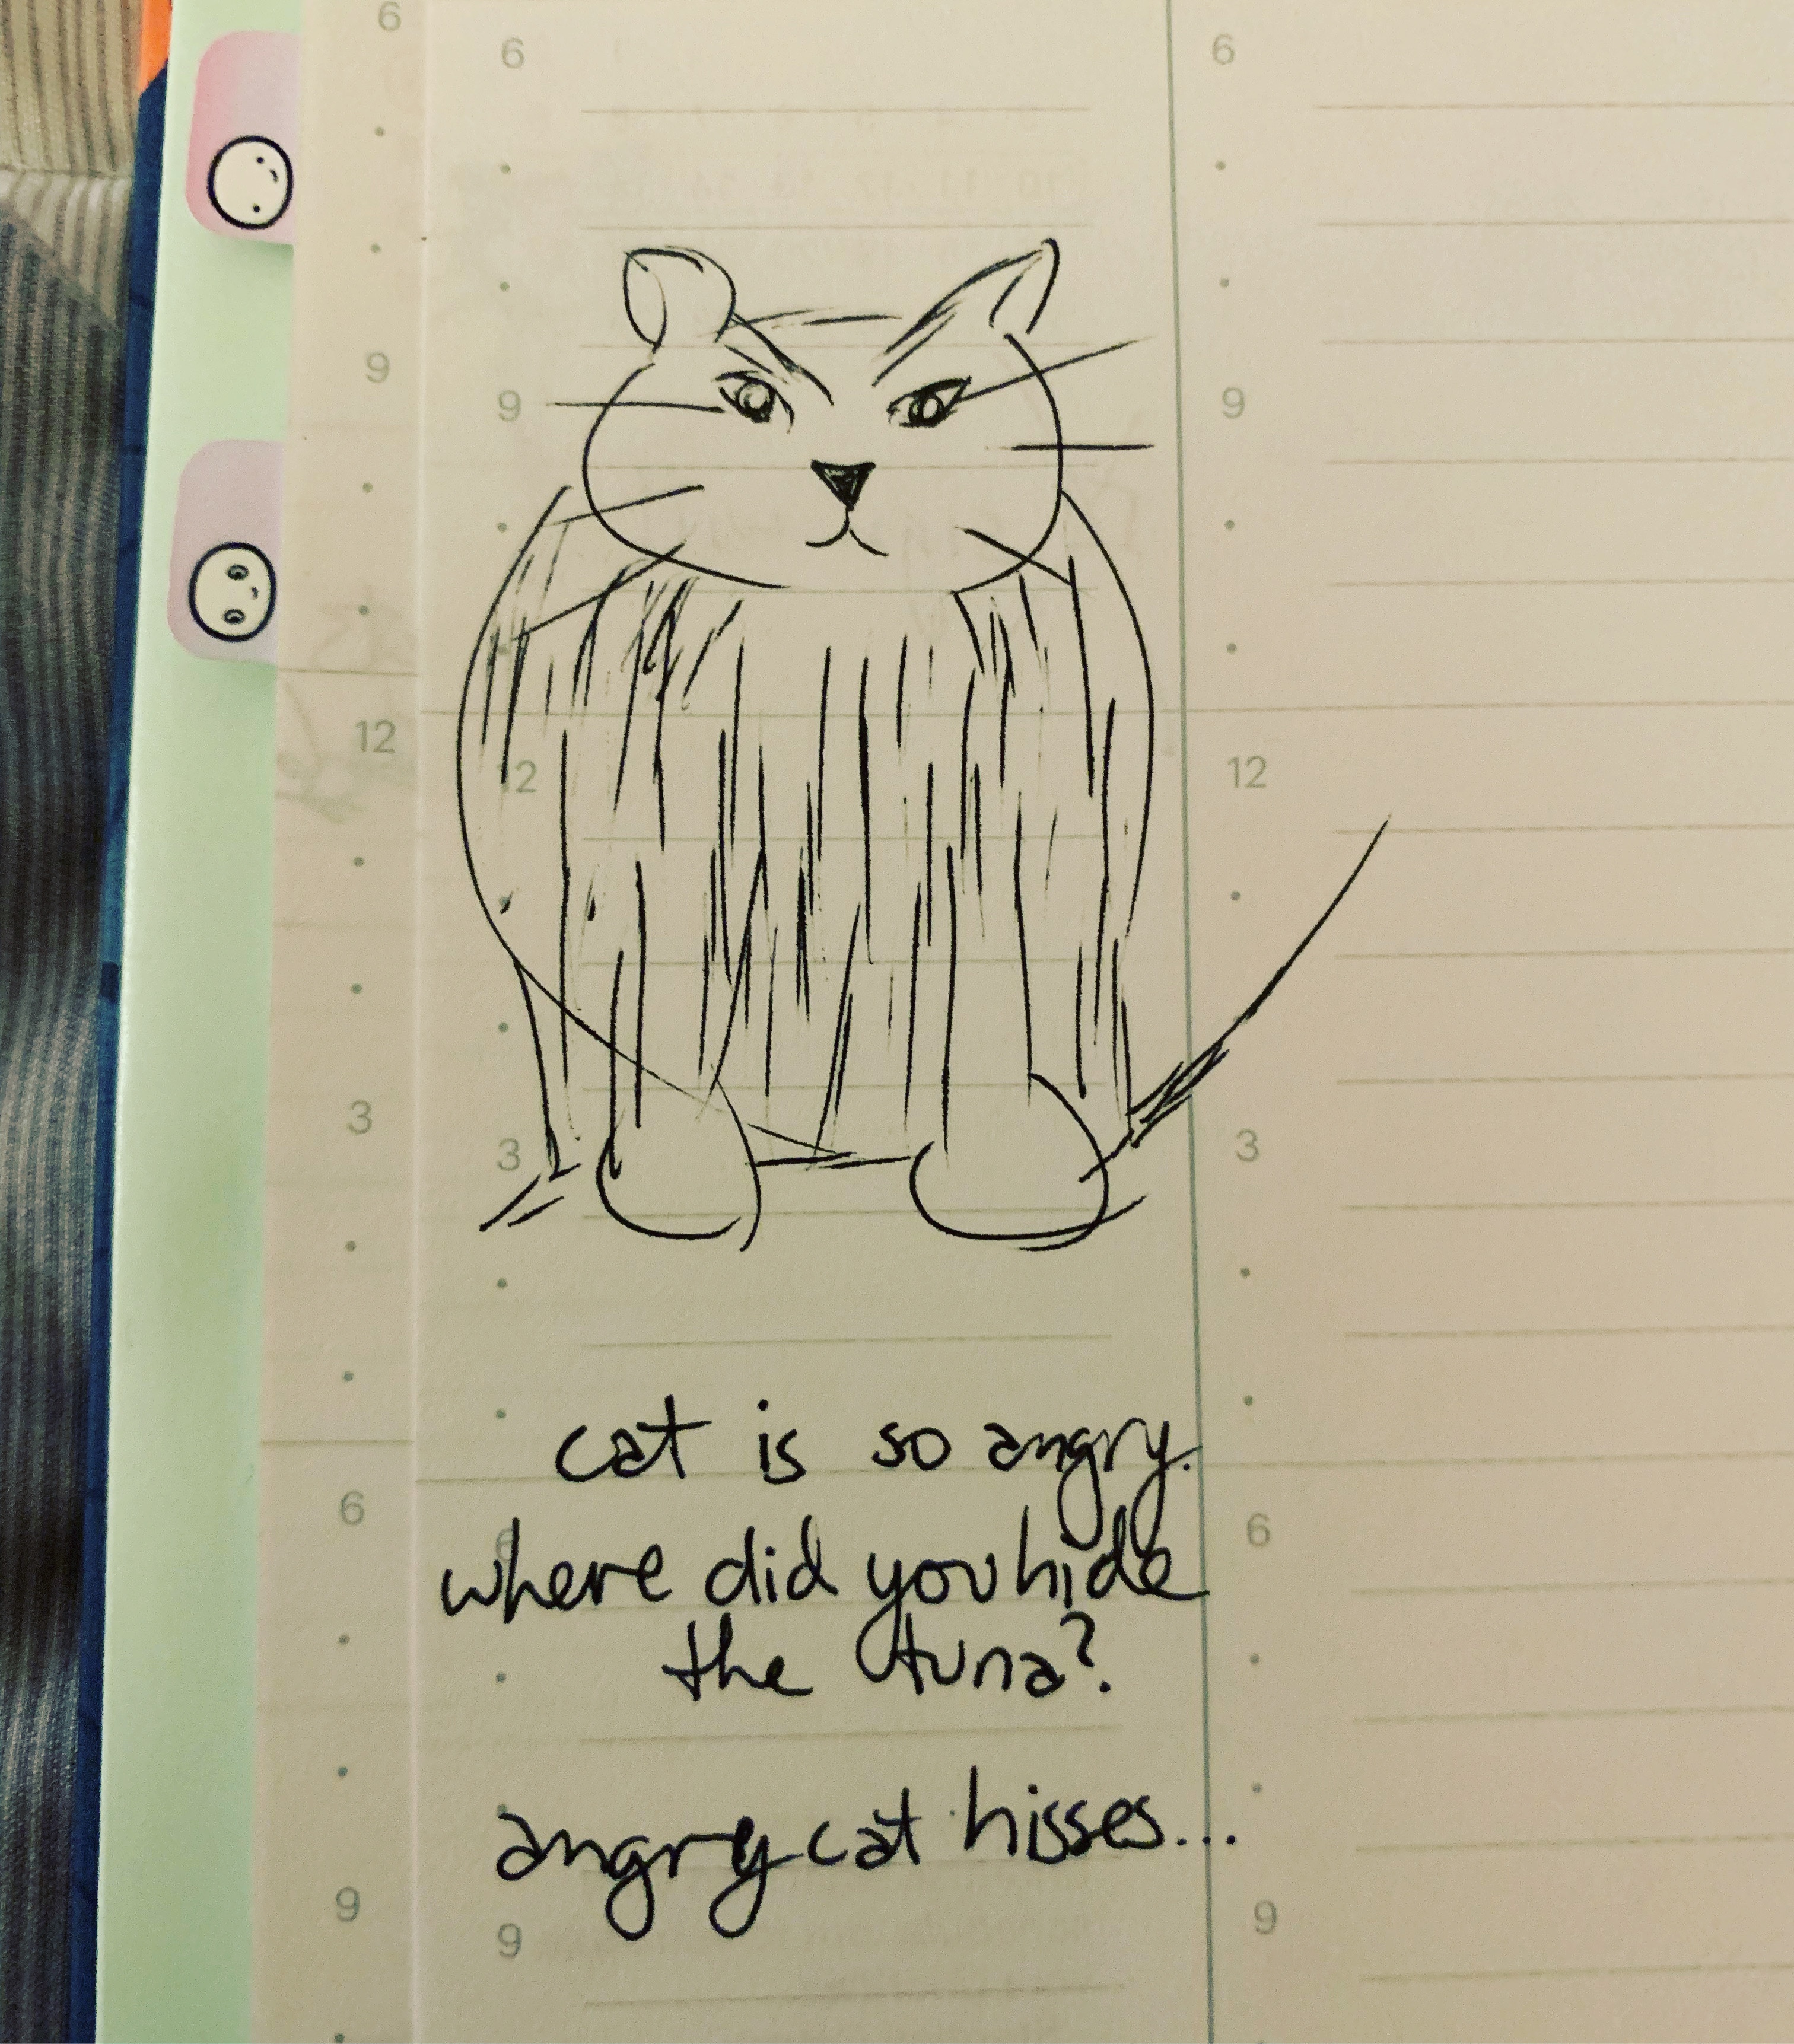 6 6 6
9 9 9
12 12 12
3 3 3
cat is so angry.
6 6 6
where did you hide
the tuna?
angry cat hisses...
9 9 9